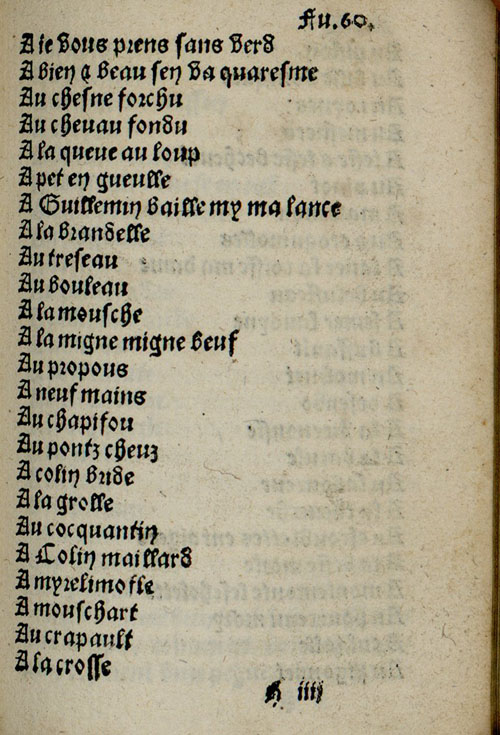 Fu.60.
A ie vous prens sans verd
A bien & beau sen va quaresme
Au chesne forchu
Au chevau fondu
A la queue au loup
A pet en gueulle
A Guillemin baille my ma lance
A la brandelle
Au treseau
Au bouleau
A la mousche
A la migne migne beuf
Au propous
A neuf mains
Au chapifou
Au pontz cheuz
A colin bride
A la grolle
Au cocquantin
A Colin maillard
A myrelimofle
A mouschart
Au crapault
A la crosse
H iiij